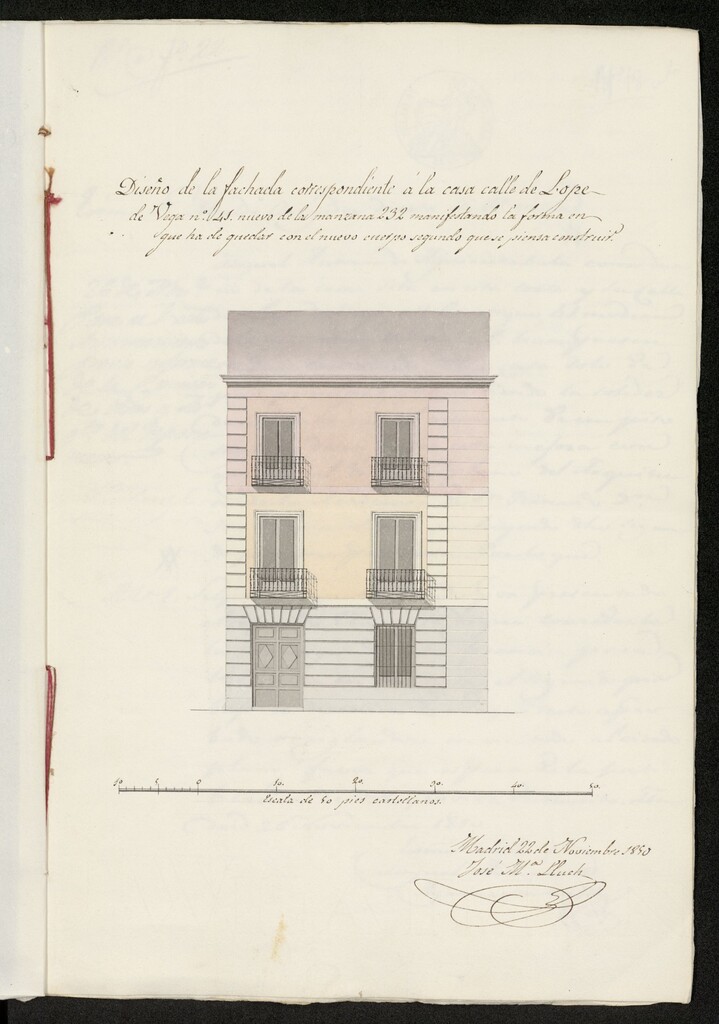 Diseño de la fachada correspondiente á la casa calle de Lope
de Vega nº 41. nuevo de la manzana 232 manifestando la forma en
que ha de quedar con el nuevo cuerpo segundo que se piensa construir.
10 5 0 10. 20. 30. 40. 50.
Escala de 50 pies castellanos.
Madrid 22 de Noviembre 1850
José Mª. Lluch